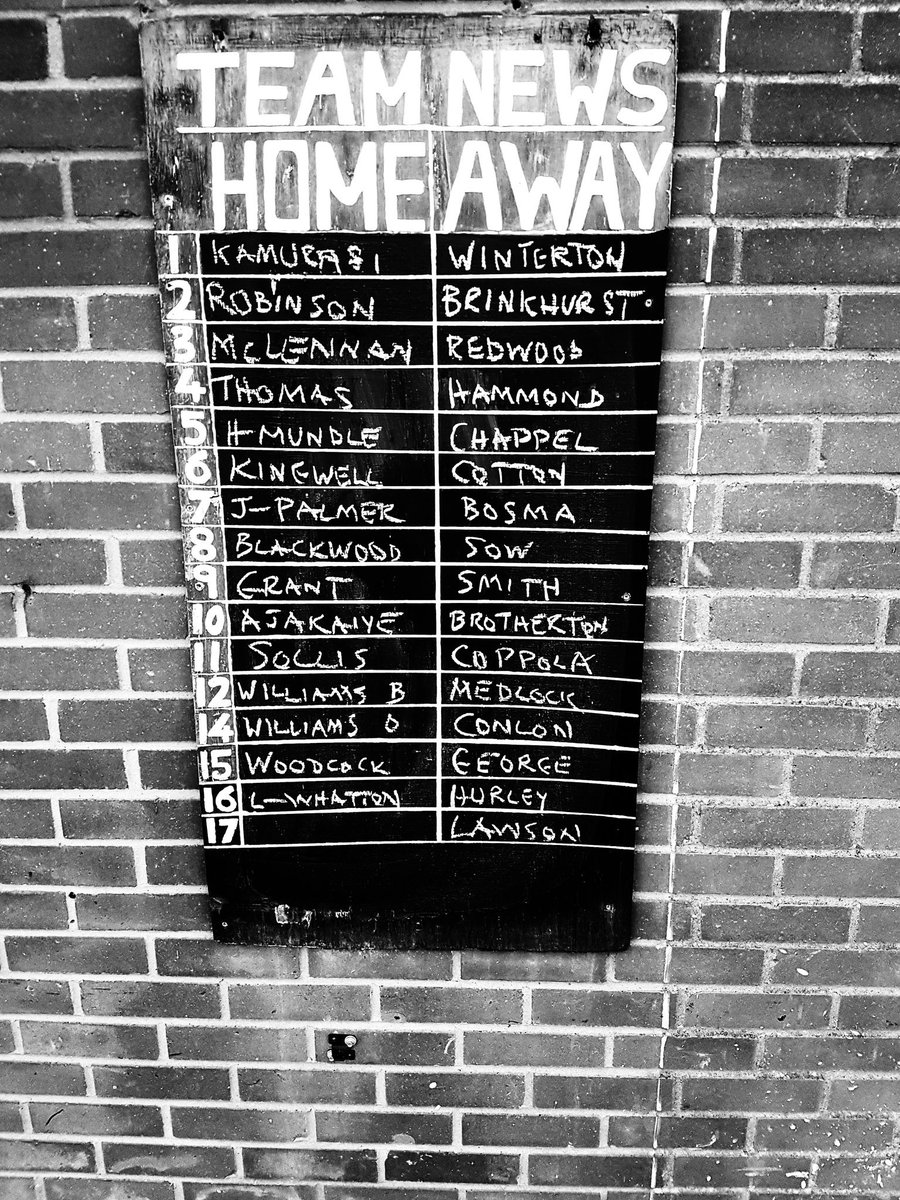 TEAM NEWS
HOME AWAY
1 KAMURASI WINTERTON
2 ROBINSON BRINKHURST
3 McLENNAN REDWOOD
4 THOMAS HAMMOND
5 H-MUNDLE CHAPPEL
6 KINGWELL COTTON
7 J-PALMER BOSMA
8 BLACKWOOD SOW
9 GRANT SMITH
10 AJAKAIYE BROTHERTON
11 SOLLIS COPPOLA
12 WILLIAMS B MEDLOCK
14 WILLIAMS O CONLON
15 WOODCOCK GEORGE
16 L-WHATTON HURLEY
17 LAWSON